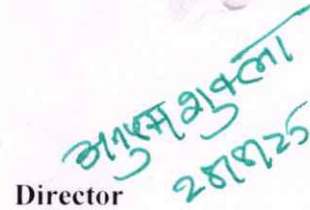 अनुपम शुक्ला
28/8/25
Director